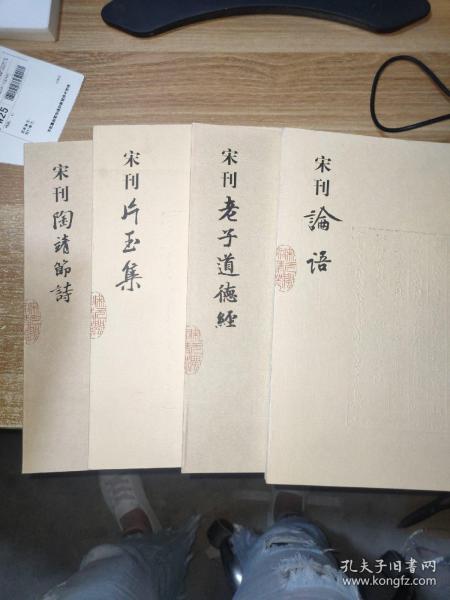 宋刊論語
宋刊老子道德經
宋刊片玉集
宋刊陶靖節詩
25
孔夫子旧书网
www.kongfz.com